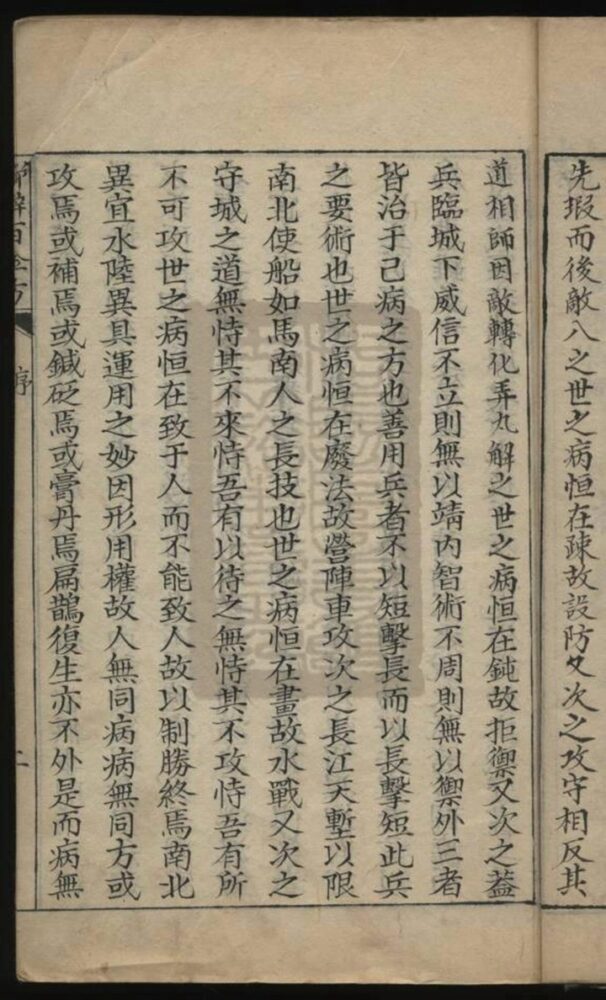 先瑕而後敵八之世之病恒在疎故設防又次之攻守相反其
道相師因敵轉化弄丸解之世之病恒在鈍故拒禦又次之蓋
兵臨城下威信不立則無以靖内智術不周則無以禦外三者
皆治于己病之方也善用兵者不以短擊長而以長擊短此兵
之要術也世之病恒在廢法故營陣車攻次之長江天塹以限
南北使船如馬南人之長技也世之病恒在畫故水戰又次之
守城之道無恃其不來恃吾有以待之無恃其不攻恃吾有所
不可攻世之病恒在致于人而不能致人故以制勝終焉南北
異宜水陸異具運用之妙因形用權故人無同病病無同方或
攻焉或補焉或鍼砭焉或膏丹焉扁鵲復生亦不外是而病無
序
二